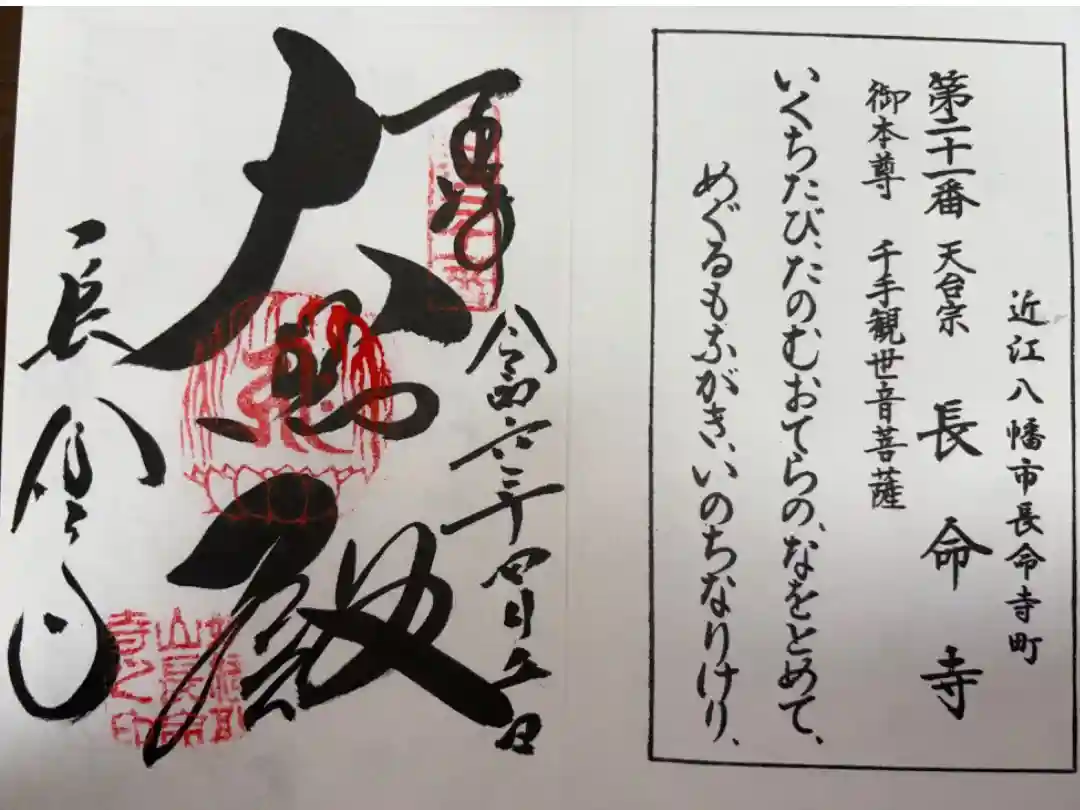 近江八幡市長命寺町
第三十一番 天台宗 長命寺
御本尊 千手観世音菩薩
いくちたび、たのむおてらの、なをとめて、
めぐるもふがき、いのちなりけり、
奉拝
令和六年四月五日
大悲殿
長命寺
山長命
寺之印